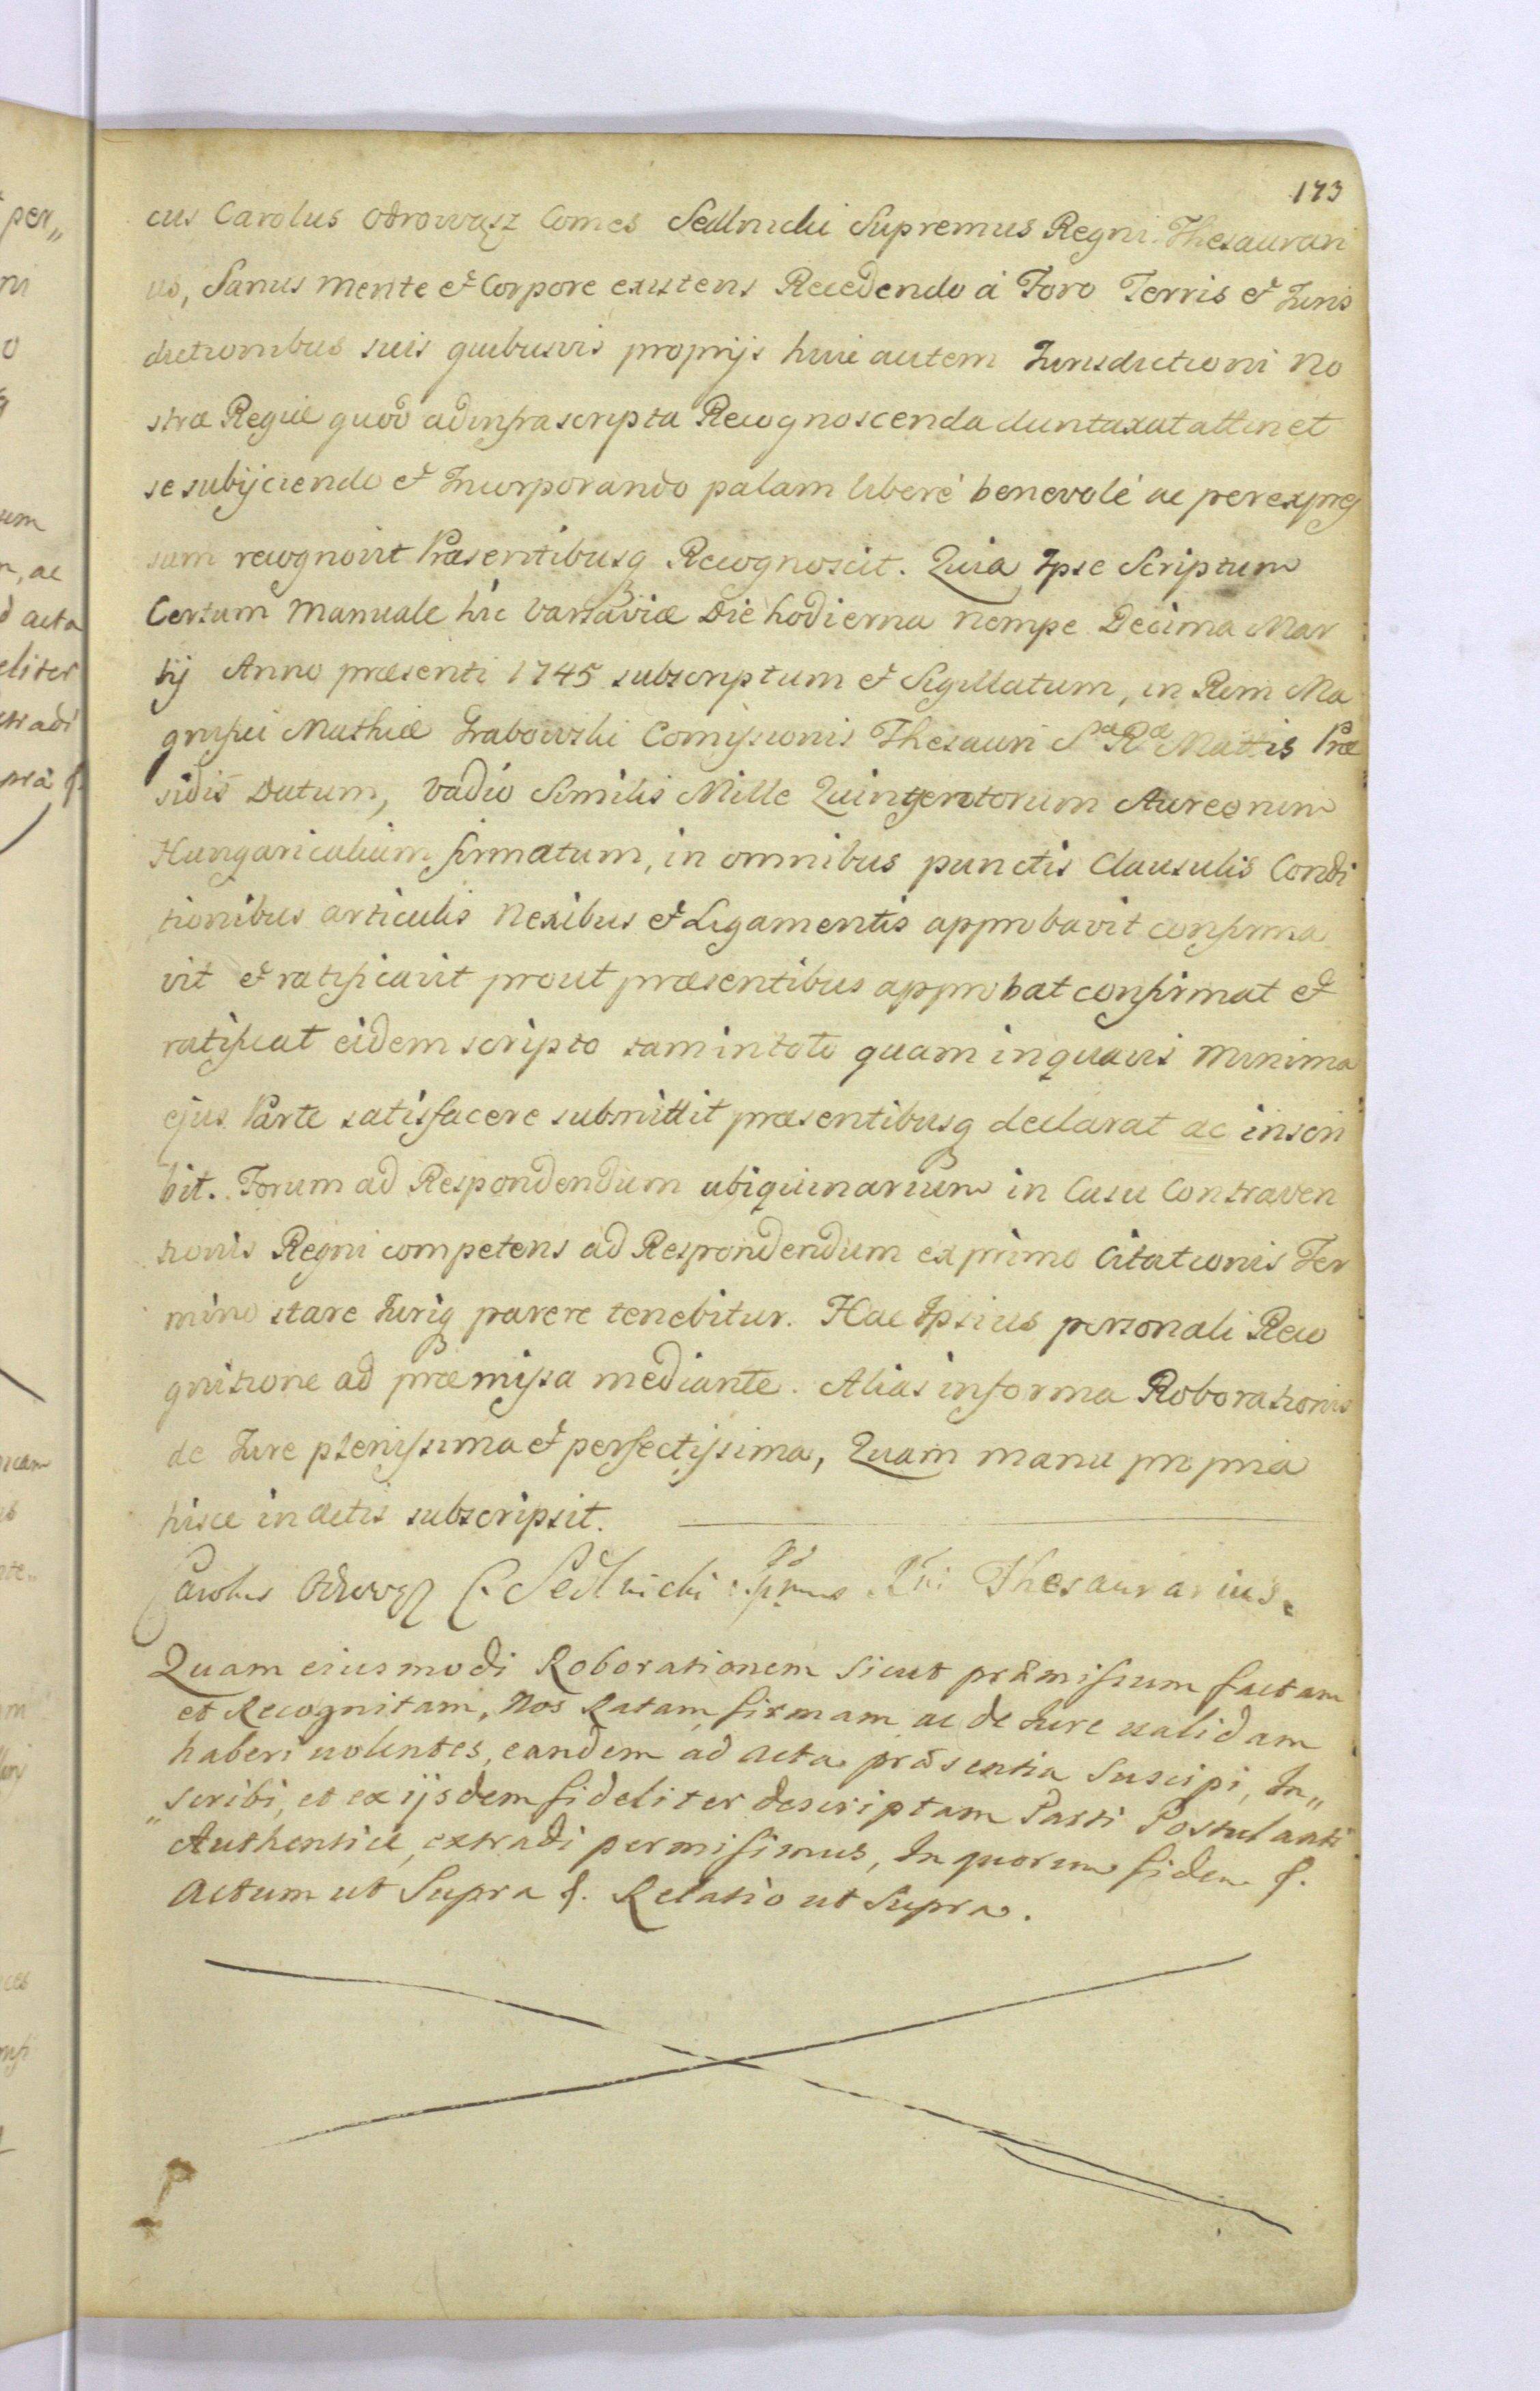 173
cus Carolus Odrowąsz Comes Sedlnicki Supremus Regni Thesaurari
us, Sanus mente et Corpore existens Recedendo à Foro Terris et Juris
dictionibus suis quibusvis proprijs huic autem Jurisdictioni No
stræ Regiæ quod ad infra scripta Recognoscenda duntaxat attinet
se subijciendo et Incorporando palam liberè benevolè ac per expres
sum recognovit Præsentibusq Recognoscit. Quia Ipse Scriptum
Certum Manuale hic Varsaviæ Die hodierna nempe Decima Mar
tij Anno præsenti 1745 subscriptum et Sigillatum, in Rem Ma
gnifici Mathiæ Grabowski Comissionis Thesauri S.ræ R.æ Mattis Præ
sidis Datum, Vadio Similis Mille Quingentorum Aureorum
Hungaricalium firmatum, in omnibus punctis Clausulis Condi
tionibus articulis Nexibus et Ligamentis approbavit confirma
vit et ratificavit prout præsentibus approbat confirmat et
ratificat eidem scripto tam in toto quam in quavis minima
ejus Parte satisfacere submittit præsentibusq declarat ac inscri
bit. Forum ad Respondendum ubiquinarium in Casu Contraven
tionis Regni competens ad Respondendum ex primo Citationis Ter
mino stare Juriq parere tenebitur. Hac Ipsius personali Reco
gnitione ad præmissa mediante. Alias in forma Roborationis
de Jure plenissima et perfectissima, Quam manu propria
hisce in actis subscripsit.
Carolus Odrowąż C. Sedlnicki Spmus Rni Thesaurarius.
Quam eiusmodi Roborationem Sicut præmissum factam
et Recognitam, Nos Ratam, firmam ac de Jure validam
haberi volentes, eandem ad Acta præsentia Suscipi, In„
„scribi, et ex ijsdem fideliter descriptam Parti Postulanti
Authentice, extradi permisimus, In quorum fidem &.
Actum ut Supra &. Relatio ut Supra.